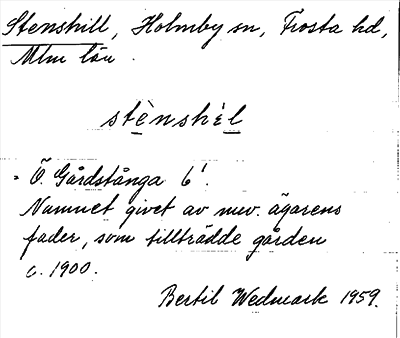 Stenshill, Holmby sn, Frosta hd,
Mlm län.
stènshìl
= Ö. Gårdstånga 6¹.
Namnet givet av nuv. ägarens
fader, som tillträdde gården
c. 1900.
Bertil Wedmark 1959.